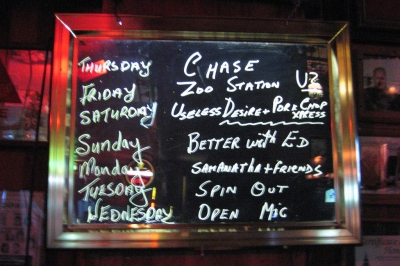 THURSDAY CHASE
FRIDAY ZOO STATION U2
SATURDAY USELESS DESIRE + PORK CHOP XPRESS
Sunday BETTER with E.D
Monday SAMANATHA + FRIENDS
TUESDAY SPIN OUT
WEDNESDAY OPEN MIC